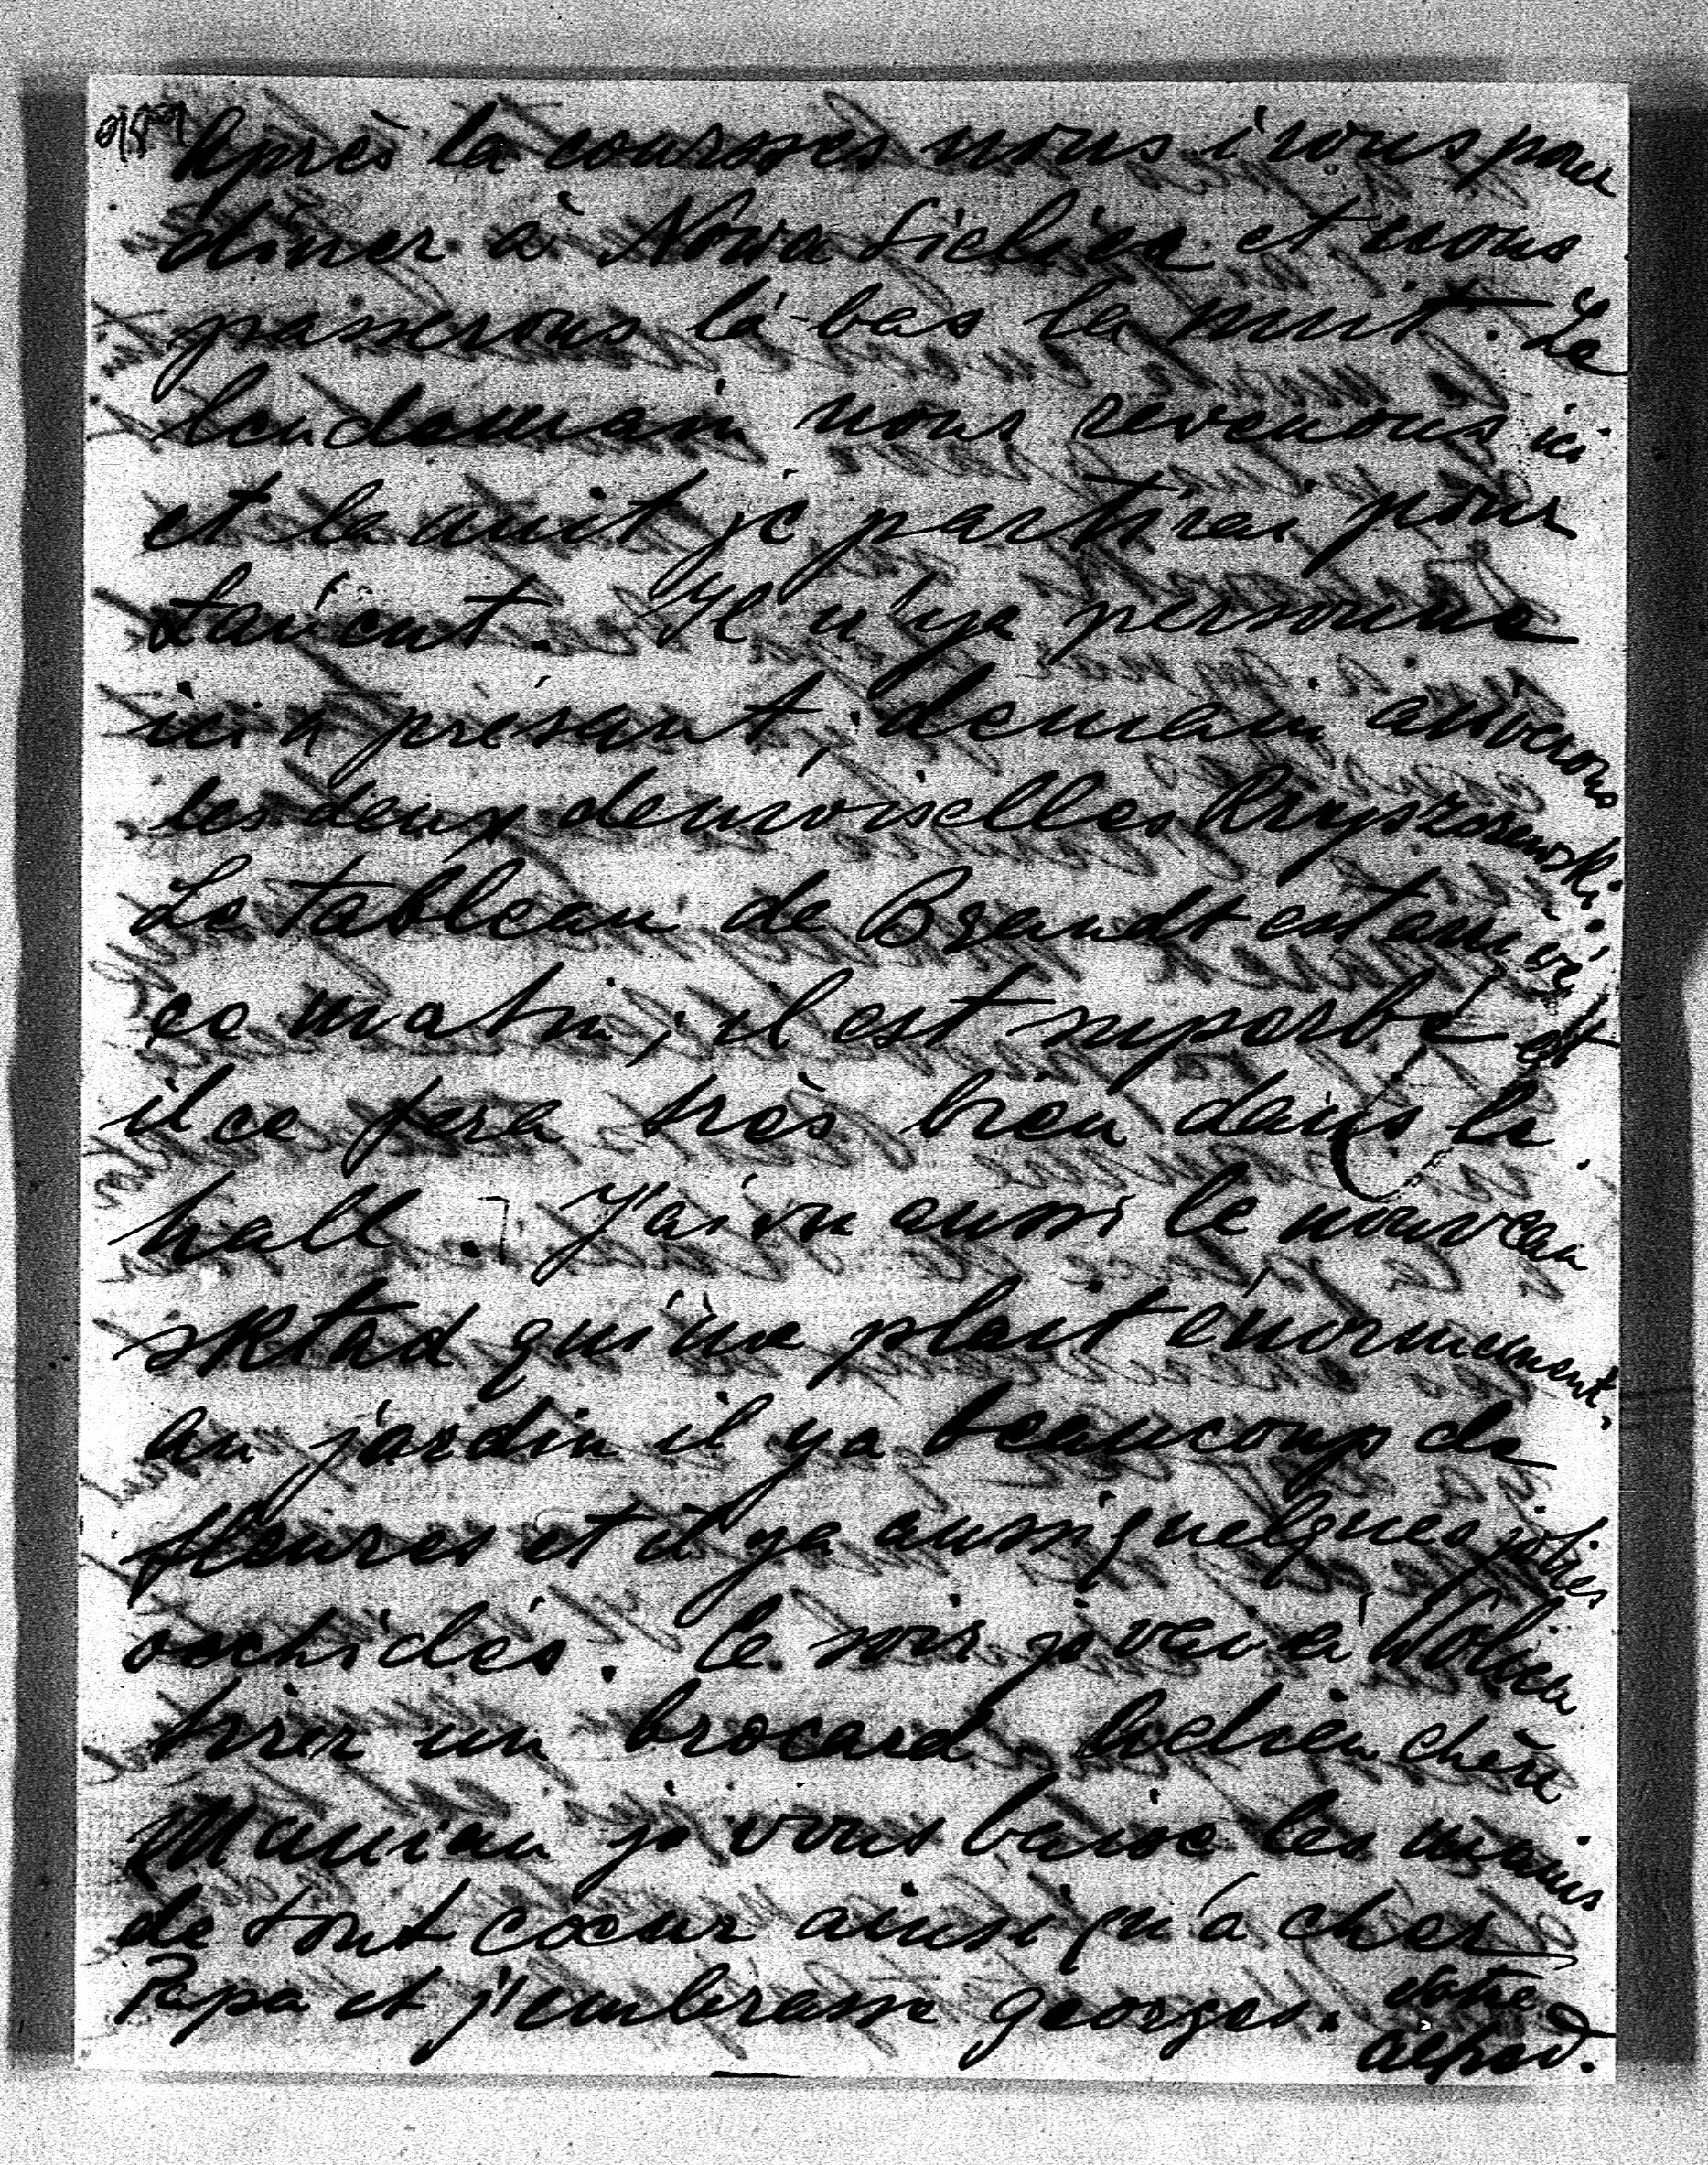 Après la courses nous irons pour
diner à Nowa Sielica et nous
passerons là-bas la nuit. Le
lendemain nous revenons ici
et la nuit je partirai pour
Il n'ya personne
ici a présant, demain arriverons
les deux demoiselles
Le tableau de Brandt est arrivé
ce matin, il est superbe et
il ce fera très bien dans le
hall. J'ai vu aussi le nouveau
skład qui me plait énormement,
au jardin il ya beaucoup de
fleures et il ya aussi quelques jolies
orchidés. Ce soir je vai à
tirer un brocard. Adieu chère
Maman je vous baise les mains
de tout cœur ainsi qu'à cher
Papa et j'embrasse Georges. Votre